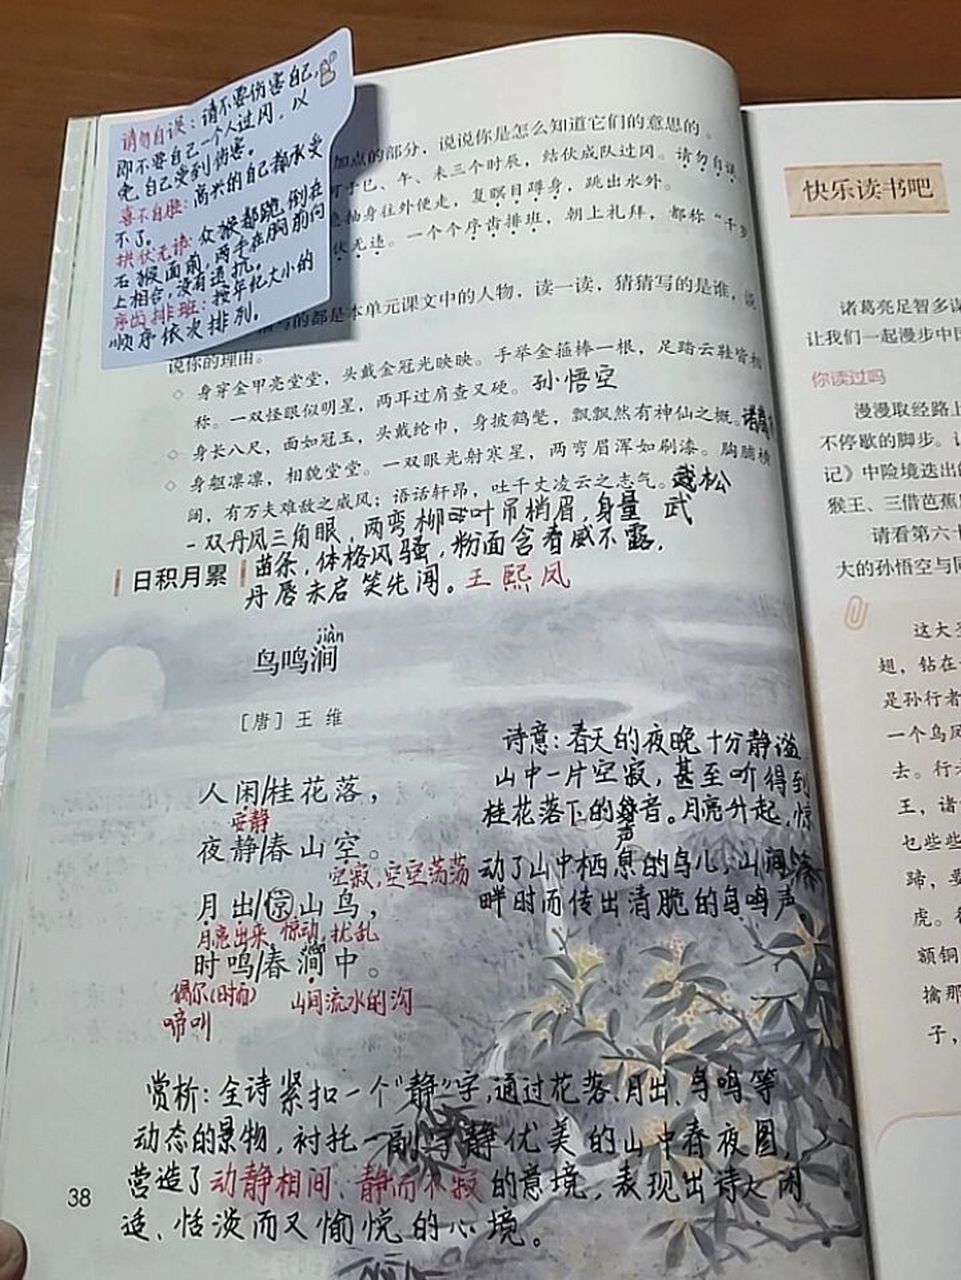 请勿自误：请不要伤害自己，
即不要自己一个人过冈，以
免自己受到伤害。
喜不自胜：高兴的自己都承受
不了。
拱伏无违：众猴都跪倒在
石猴面前，两手在胸前向
上相合，没有违抗。
序齿排班：按年纪大小的
顺序依次排列。
加点的部分，说说你是怎么知道它们的意思的。
于巳、午、未三个时辰，结伙成队过冈。请勿自误
抽身往外便走，复瞑目蹲身，跳出水外。
伏无违。一个个序齿排班，朝上礼拜，都称“千岁
写的都是本单元课文中的人物，读一读，猜猜写的是谁，说
说你的理由。
◇ 身穿金甲亮堂堂，头戴金冠光映映。手举金箍棒一根，足踏云鞋皆相
称。一双怪眼似明星，两耳过肩查又硬。孙悟空
◇ 身长八尺，面如冠玉，头戴纶巾，身披鹤氅，飘飘然有神仙之概。诸葛
◇ 身躯凛凛，相貌堂堂。一双眼光射寒星，两弯眉浑如刷漆。胸脯横
阔，有万夫难敌之威风；语话轩昂，吐千丈凌云之志气。松
武
一双丹凤三角眼，两弯柳叶吊梢眉，身量
苗条，体格风骚，粉面含春威不露，
丹唇未启笑先闻。王熙凤
日积月累
jiàn
鸟鸣涧
［唐］王维
人闲/桂花落，
安静
夜静/春山空。
空寂，空空荡荡
月出/惊山鸟，
月亮出来 惊动，扰乱
时鸣/春涧中。
偶尔(时而) 山间流水的沟
啼叫
诗意：春天的夜晚十分静谧
山中一片空寂，甚至听得到
桂花落下的声音。月亮升起，惊
动了山中栖息的鸟儿，山涧
畔时而传出清脆的鸟鸣声。
赏析：全诗紧扣一个“静”字，通过花落、月出、鸟鸣等
动态的景物，衬托一副宁静优美的山中春夜图，
营造了动静相间、静而不寂的意境，表现出诗人闲
适、恬淡而又愉悦的心境。
38
快乐读书吧
诸葛亮足智多谋
让我们一起漫步中国
你读过吗
漫漫取经路上
不停歇的脚步。让
记》中险境迭出的
猴王、三借芭蕉扇
请看第六十
大的孙悟空与同
这大圣
翅，钻在
是孙行者
一个乌凤
去。行者
王，诸
乜些些
蹄，要
虎。行
额铜
擒那
子，